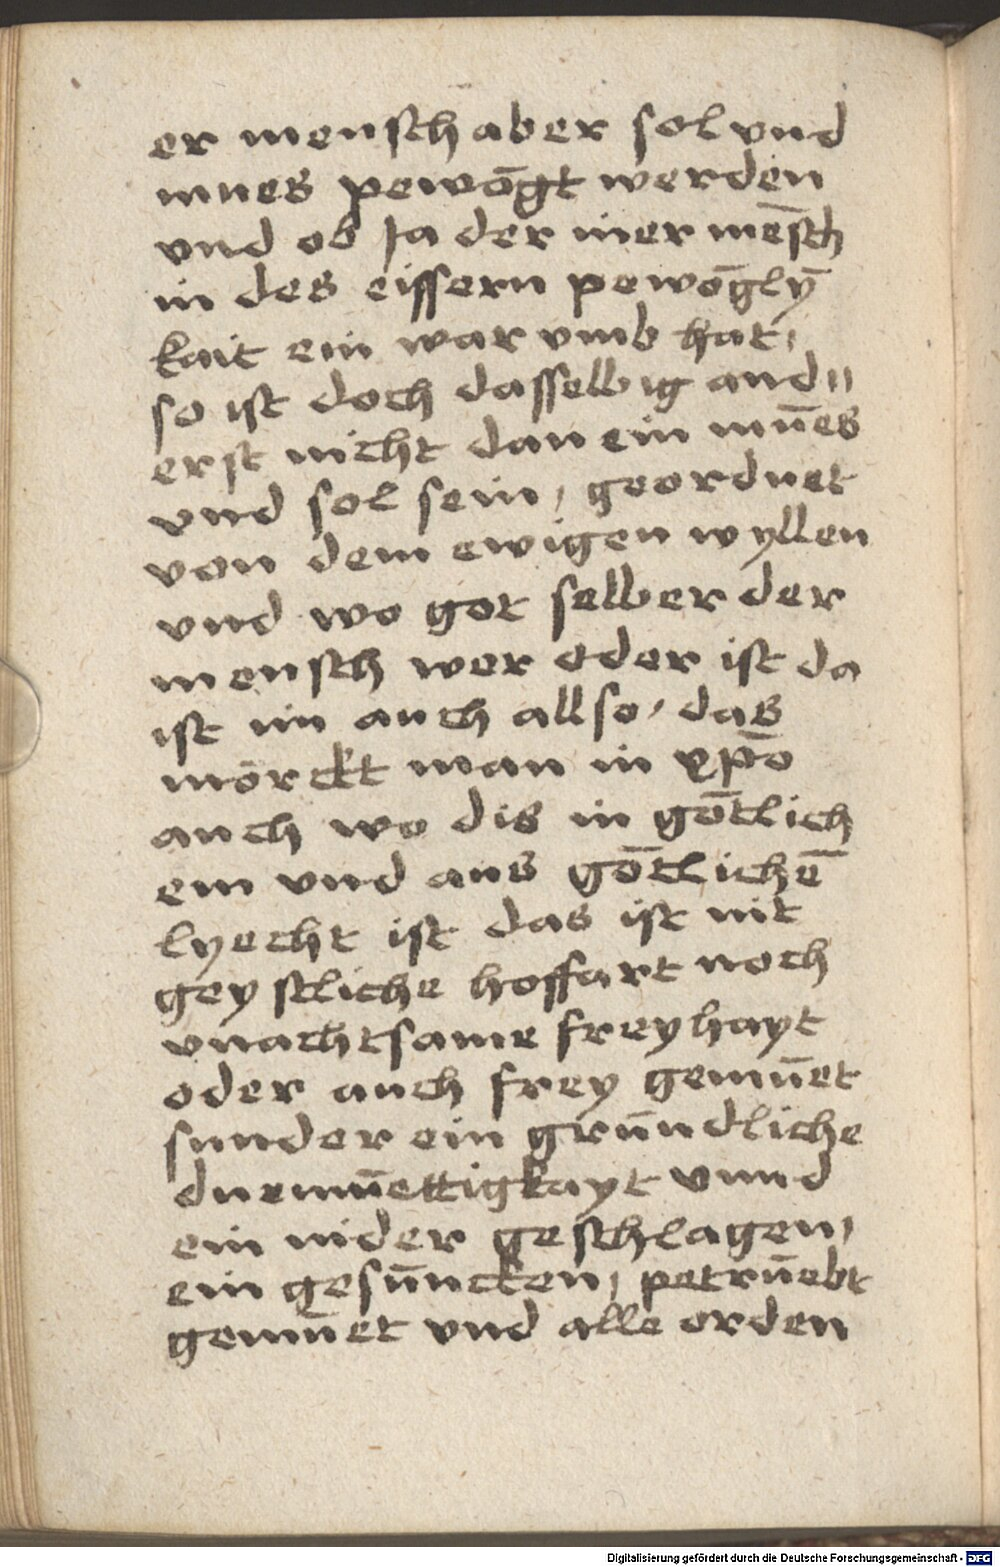 er mensch aber sol vnd
mues pewōgt werden
vnd ob Ja der iner mēsch
in des eissern pewōglÿ
kait ein war vmb hat,
so ist doch dasselbig and⸗
erst nicht dan ein mūes
vnd sol sein, geordnet
von dem ewigen wyllen
vnd wo got selber der
mensch wer oder ist da
ist im auch allso, das
mōrckt man in xp̄o
auch wo dis in gōtlich
em vnd aus gōtlichē
lyecht ist das ist nit
geystliche hoffart noch
vnachtsame freyhayt
oder auch frey gemūet
sunder ein grūndliche
duemūettigkayt vnnd
ein nider geschlagen,
ein gesūncken, petrūebt
gemūet vnd alle orden
Digitalisierung gefördert durch die Deutsche Forschungsgemeinschaft - DFG